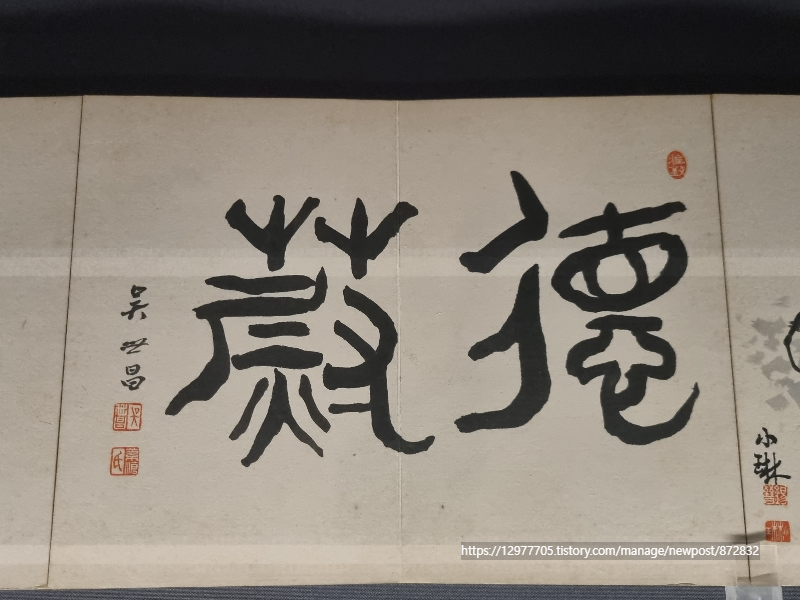 德蔚
吳世昌
小琳
https://12977705.tistory.com/manage/newpost/872832